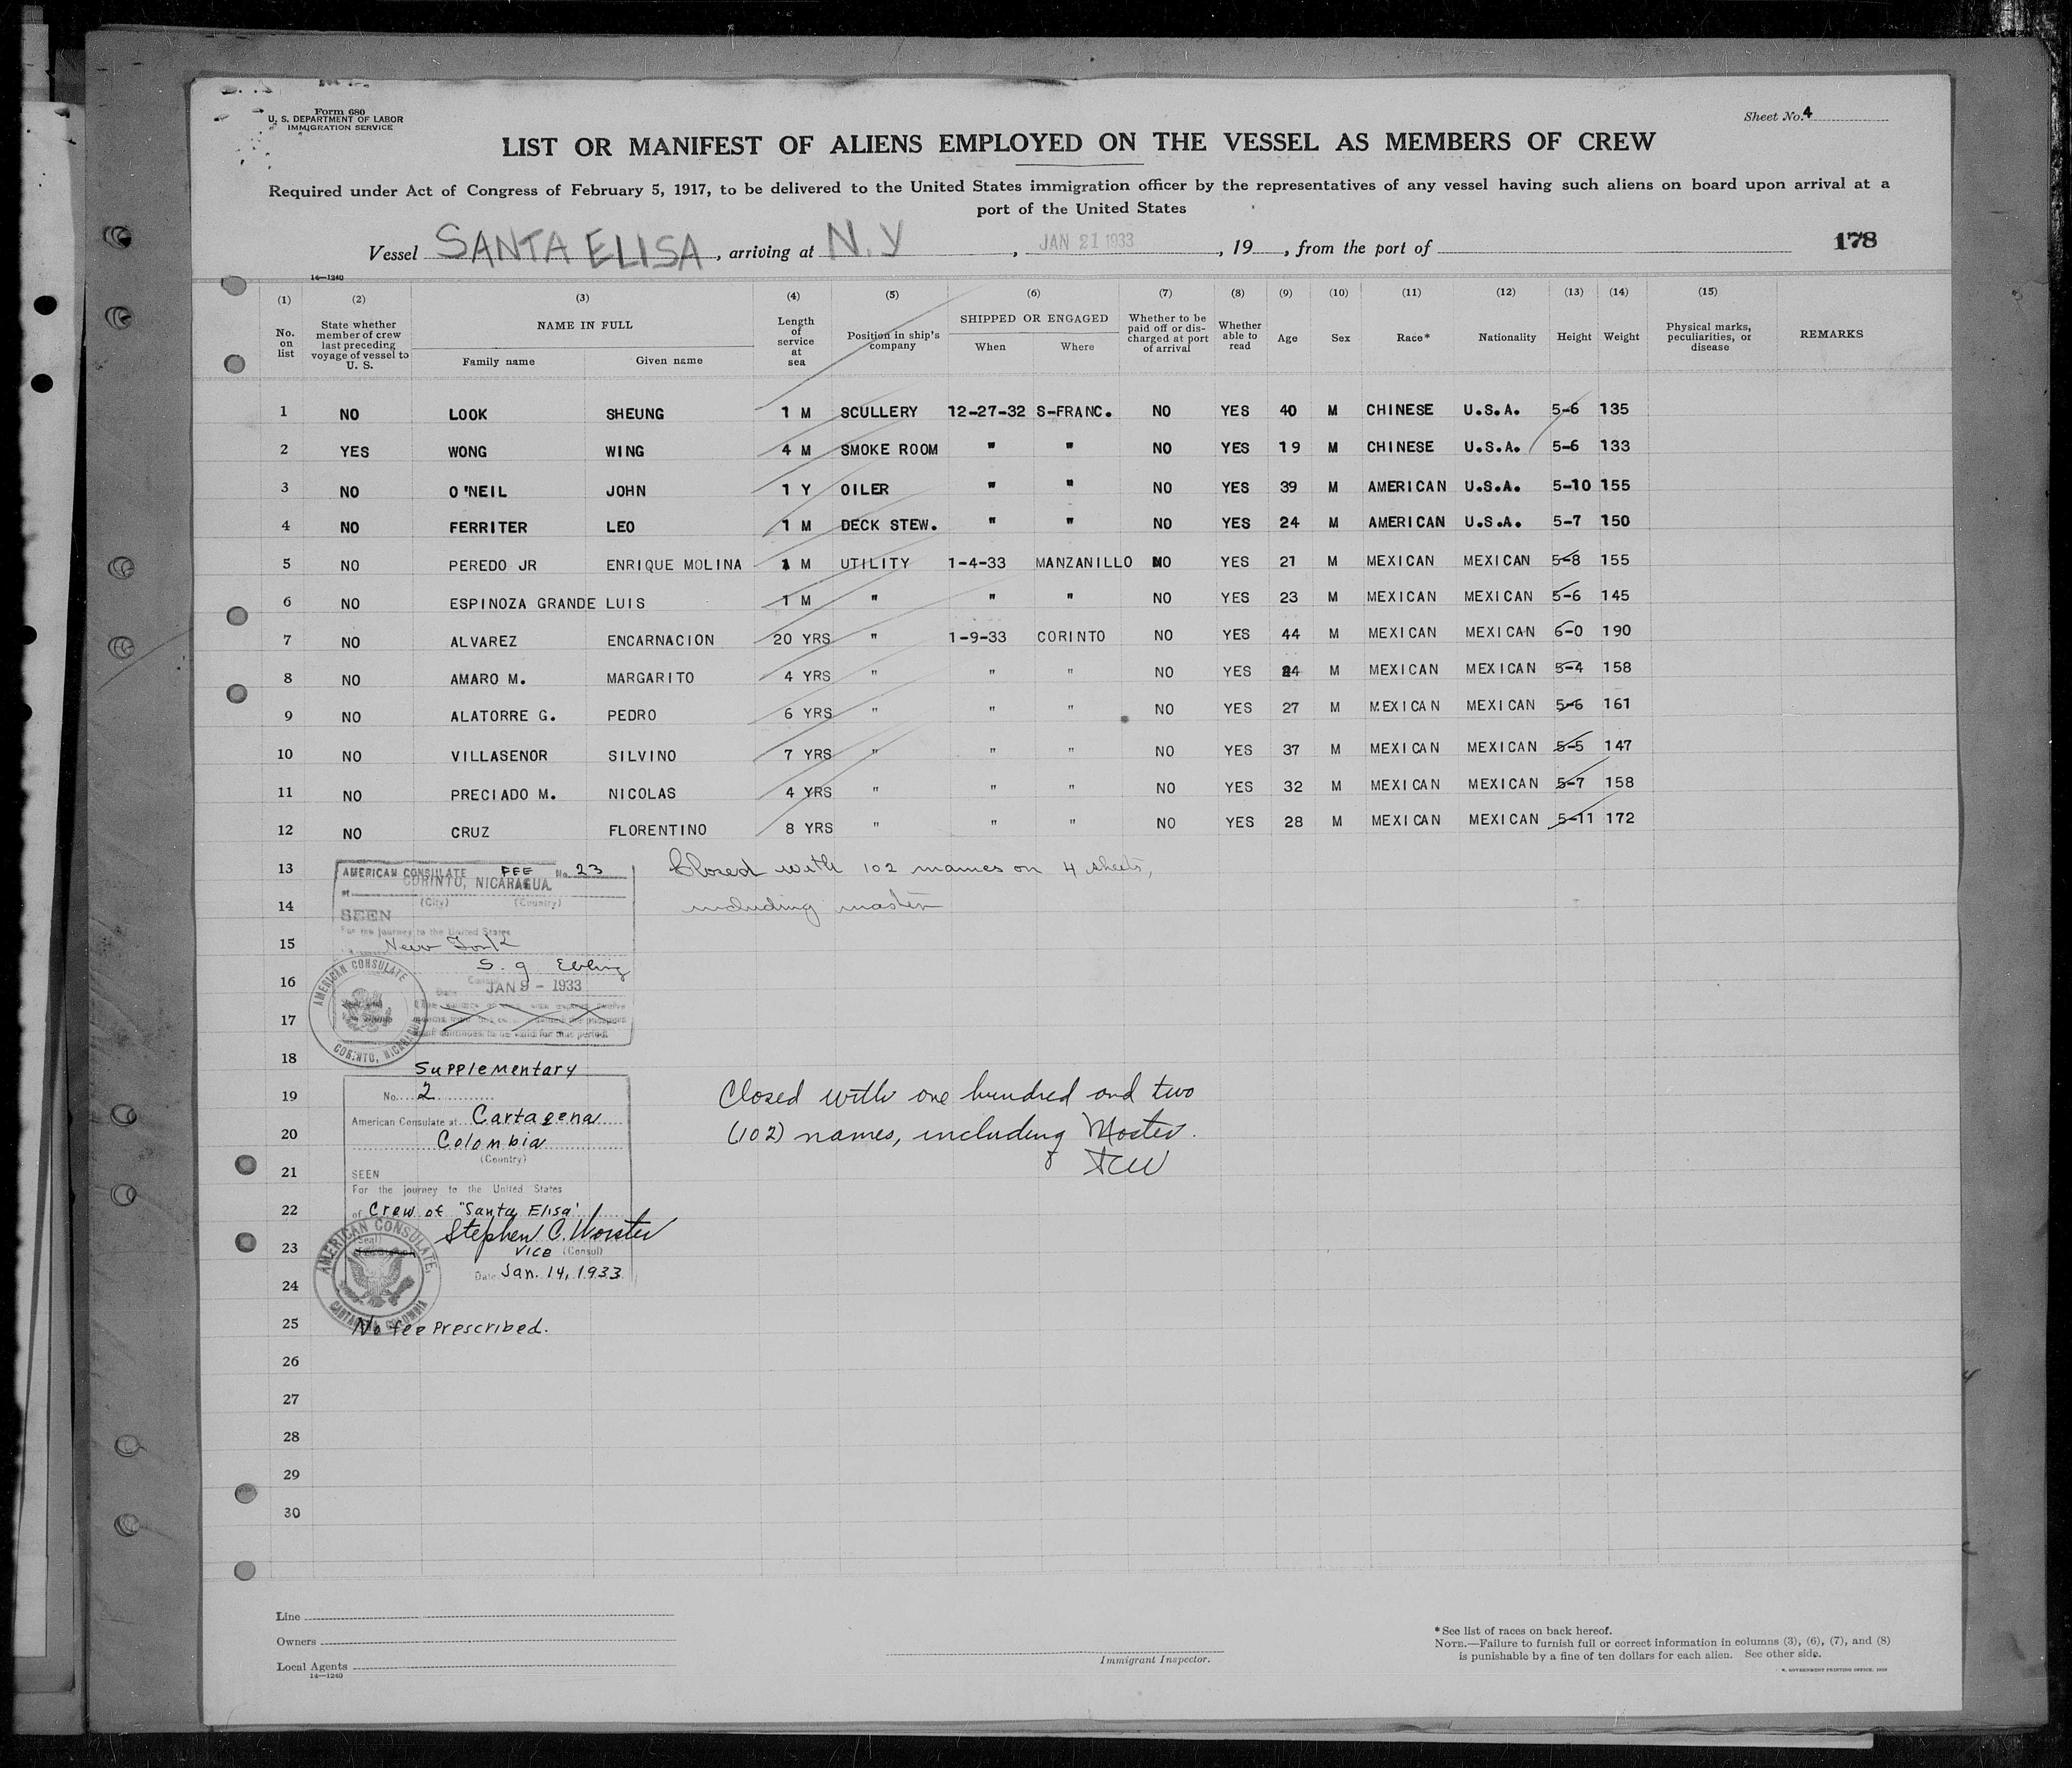 Form 680
U. S. DEPARTMENT OF LABOR
IMMIGRATION SERVICE
Sheet No. 4
LIST OR MANIFEST OF ALIENS EMPLOYED ON THE VESSEL AS MEMBERS OF CREW
Required under Act of Congress of February 5, 1917, to be delivered to the United States immigration officer by the representatives of any vessel having such aliens on board upon arrival at a
port of the United States
Vessel SANTA ELISA, arriving at N.Y, JAN 21 1933, 19, from the port of
178
14—1240
(1) (2) (3) (4) (5) (6) (7) (8) (9) (10) (11) (12) (13) (14) (15)
No. on list
State whether member of crew last preceding voyage of vessel to U. S.
NAME IN FULL
Family name
Given name
Length of service at sea
Position in ship's company
SHIPPED OR ENGAGED
When
Where
Whether to be paid off or discharged at port of arrival
Whether able to read
Age
Sex
Race*
Nationality
Height
Weight
Physical marks, peculiarities, or disease
REMARKS
1 NO LOOK SHEUNG 1 M SCULLERY 12-27-32 S-FRANC. NO YES 40 M CHINESE U.S.A. 5-6 135
2 YES WONG WING 4 M SMOKE ROOM " " NO YES 19 M CHINESE U.S.A. 5-6 133
3 NO O'NEIL JOHN 1 Y OILER " " NO YES 39 M AMERICAN U.S.A. 5-10 155
4 NO FERRITER LEO 1 M DECK STEW. " " NO YES 24 M AMERICAN U.S.A. 5-7 150
5 NO PEREDO JR ENRIQUE MOLINA 1 M UTILITY 1-4-33 MANZANILLO NO YES 21 M MEXICAN MEXICAN 5-8 155
6 NO ESPINOZA GRANDE LUIS 1 M " " " NO YES 23 M MEXICAN MEXICAN 5-6 145
7 NO ALVAREZ ENCARNACION 20 YRS " 1-9-33 CORINTO NO YES 44 M MEXICAN MEXICAN 6-0 190
8 NO AMARO M. MARGARITO 4 YRS " " " NO YES 24 M MEXICAN MEXICAN 5-4 158
9 NO ALATORRE G. PEDRO 6 YRS " " " NO YES 27 M MEXICAN MEXICAN 5-6 161
10 NO VILLASENOR SILVINO 7 YRS " " " NO YES 37 M MEXICAN MEXICAN 5-5 147
11 NO PRECIADO M. NICOLAS 4 YRS " " " NO YES 32 M MEXICAN MEXICAN 5-7 158
12 NO CRUZ FLORENTINO 8 YRS " " " NO YES 28 M MEXICAN MEXICAN 5-11 172
13
14
15
16
17
18
19
20
21
22
23
24
25
26
27
28
29
30
AMERICAN CONSULATE FEE No. 23
at CORINTO, NICARAGUA.
(City) (Country)
SEEN
For the journey to the United States
New York
S. G Ebling
Date JAN 9 - 1933
continues to be valid for that period.
AMERICAN CONSULATE
CORINTO, NICARAGUA
Closed with 102 names on 4 sheets,
including master
Supplementary
No. 2
American Consulate at Cartagena
Colombia
(Country)
SEEN
For the journey to the United States
of Crew of "Santa Elisa"
Stephen C. Worster
(Seal)
Vice (Consul)
Date Jan. 14, 1933
AMERICAN CONSULATE,
CARTAGENA, COLOMBIA
No fee Prescribed.
Closed with one hundred and two
(102) names, including Master.
SCW
Line
Owners
Local Agents
14—1240
Immigrant Inspector.
*See list of races on back hereof.
NOTE.—Failure to furnish full or correct information in columns (3), (6), (7), and (8)
is punishable by a fine of ten dollars for each alien. See other side.
GOVERNMENT PRINTING OFFICE